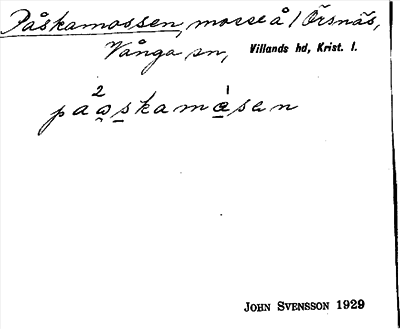 Påskamossen, mosse å / Örsnäs,
Vånga sn, Villands hd, Krist. l.
paa̯s̲kamo̲sen
John Svensson 1929